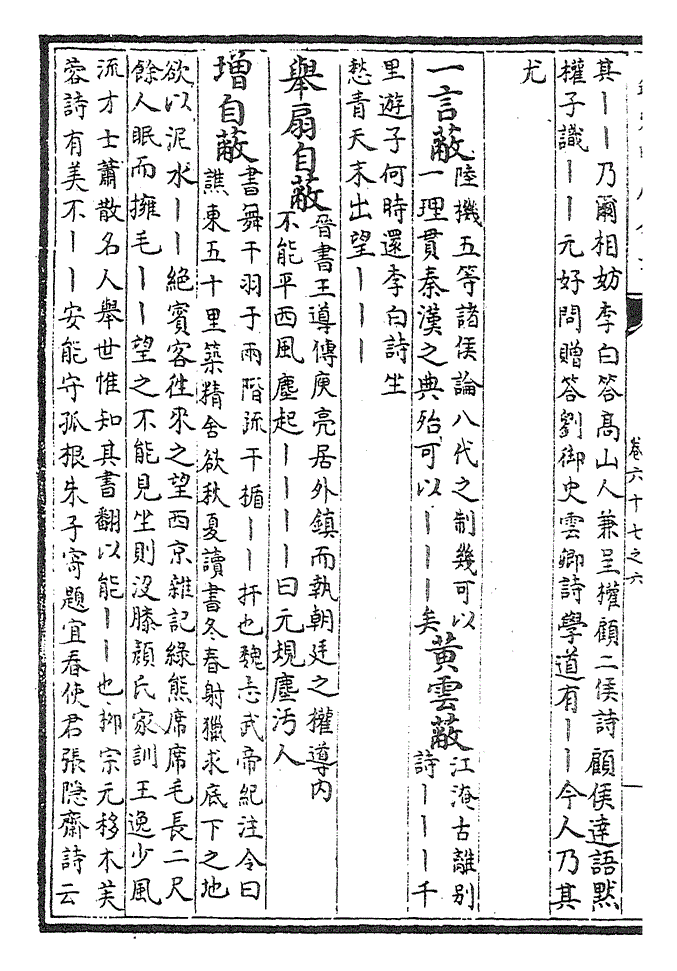 卷六十七之六
其丨丨乃爾相妨李白答高山人兼呈權顧二侯詩顧侯達語默
權子識丨丨元好問贈答劉御史雲卿詩學道有丨丨今人乃其
尤
一言蔽
陸機五等諸侯論八代之制幾可以
一理貫秦漢之典殆可以丨丨丨矣
黃雲蔽
江淹古離別
詩丨丨丨千
里遊子何時還李白詩坐
愁青天末出望丨丨丨
舉扇自蔽
晉書王導傳庾亮居外鎮而執朝廷之權導内
不能平西風塵起丨丨丨丨曰元規塵汚人
增自蔽
書舞干羽于兩階疏干楯丨丨扞也魏志武帝紀注令曰
譙東五十里築精舍欲秋夏讀書冬春射獵求底下之地
欲以泥水丨丨絶賓客往來之望西京雜記綠熊席席毛長二尺
餘人眠而擁毛丨丨望之不能見坐則沒膝顔氏家訓王逸少風
流才士蕭散名人舉世惟知其書翻以能丨丨也柳宗元移木芙
蓉詩有美不丨丨安能守孤根朱子寄題宜春使君張隱齋詩云